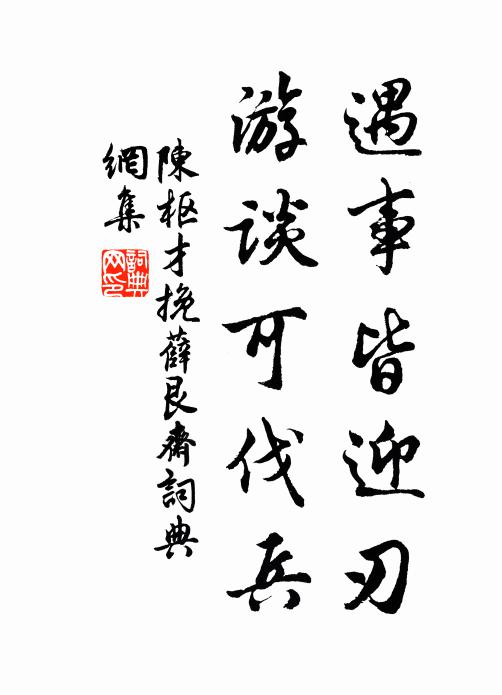 遇事皆迎刃
游谈可伐兵
陳枢才挽薛艮齋詞典
網集
詞典网印